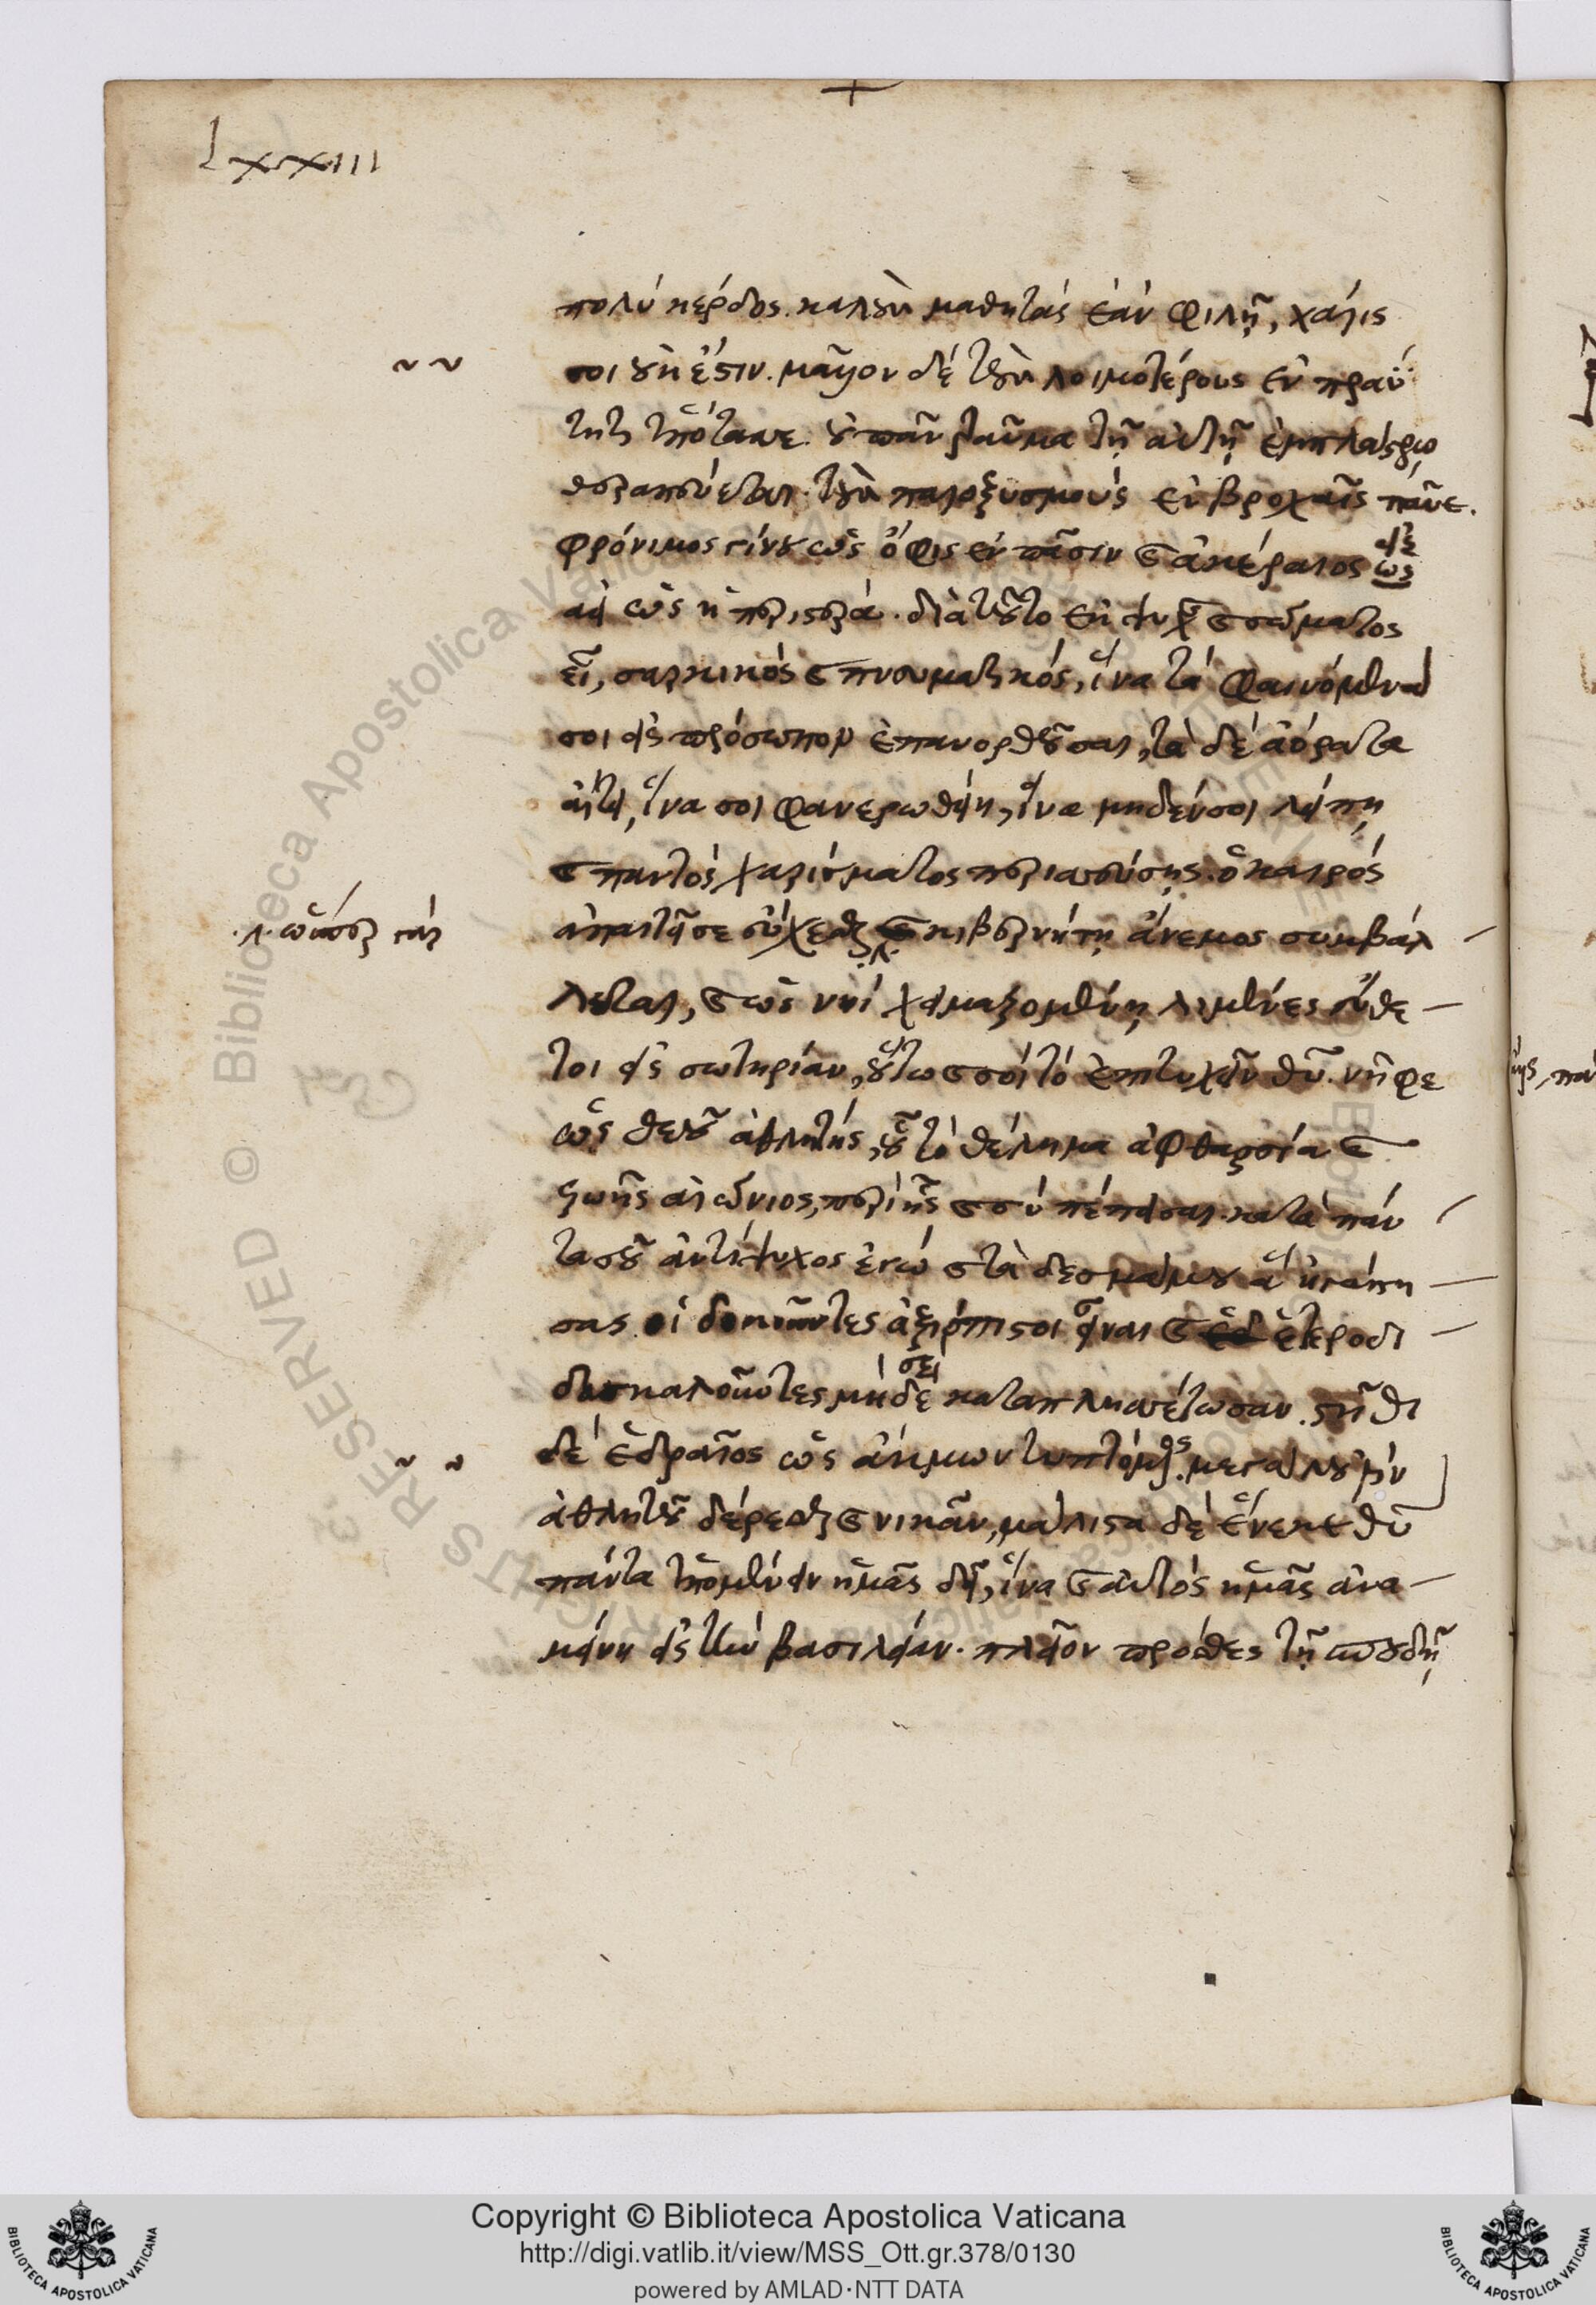 lxxiii
πολὺ κέρδος. καλοὺς μαθητὰς ἐὰν φιλῇς, χάρις
σοι οὐκ ἔστιν. μᾶλλον δὲ τοὺς λοιμοτέρους ἐν πραΰ
τητι ὑπότασσε. οὐ πᾶν τραῦμα τῇ αὐτῇ ἐμπλάστρῳ
θεραπεύεται. τοὺς παροξυσμοὺς ἐν βροχαῖς παῦε.
φρόνιμος γίνου ὡς ὄφις ἐν πᾶσιν καὶ ἀκέραιος εἰς
ὡς
ἀεὶ ὡς ἡ περιστερά. διὰ τοῦτο ἐκ ψυχῆς καὶ σώματος
εἶ, σαρκικὸς καὶ πνευματικός, ἵνα τὰ φαινόμενά
σοι εἰς πρόσωπον ἐπανορθώσῃ, τὰ δὲ ἀόρατα
αἴτει, ἵνα σοι φανερωθείη, ἵνα μηδέν σοι λείπῃ
καὶ παντὸς χαρίσματος περισσεύσῃς. ὁ καιρὸς
ἀπαιτεῖ σε εὔχεσθαι κυβερνήτῃ ἄνεμος συμβάλ
.λ. ὥσπερ γὰρ
λεται, καὶ ὡς νηὶ χειμαζομένῃ λιμένες εὔθε
τοι εἰς σωτηρίαν, οὕτω καὶ σοὶ τὸ ἐπιτυχεῖν θῦ. νῆφε
ὡς θεοῦ ἀθλητής, οὗ τὸ θέλημα ἀφθαρσία καὶ
ζωῆς αἰώνιος, περὶ ἧς καὶ σὺ πέπεισαι. κατὰ πάν
τα σοῦ ἀντίψυχος ἐγὼ καὶ τὰ δεσμά μου ἃ ἠγάπη
σας. οἱ δοκοῦντες ἀξιόπιστοι εἶναι καὶ ἑτεροδι
δασκαλοῦντες μηδέ σε καταπλησσέτωσαν. στῆθι
δὲ ἑδραῖος ὡς ἄκμων τυπτόμενος. μεγάλου μὲν
ἀθλητοῦ δέρεσθαι καὶ νικᾶν, μάλιστα δὲ ἕνεκε θῦ
πάντα ὑπομένειν ἡμᾶς δεῖ, ἵνα καὶ αὐτὸς ἡμᾶς ἀνα
μείνῃ εἰς τὴν βασιλείαν. πλεῖον πρόσθες τῇ σπουδῇ
Copyright © Biblioteca Apostolica Vaticana
http://digi.vatlib.it/view/MSS_Ott.gr.378/0130
powered by AMLAD·NTT DATA
BIBLIOTECA APOSTOLICA VATICANA
BIBLIOTECA APOSTOLICA VATICANA